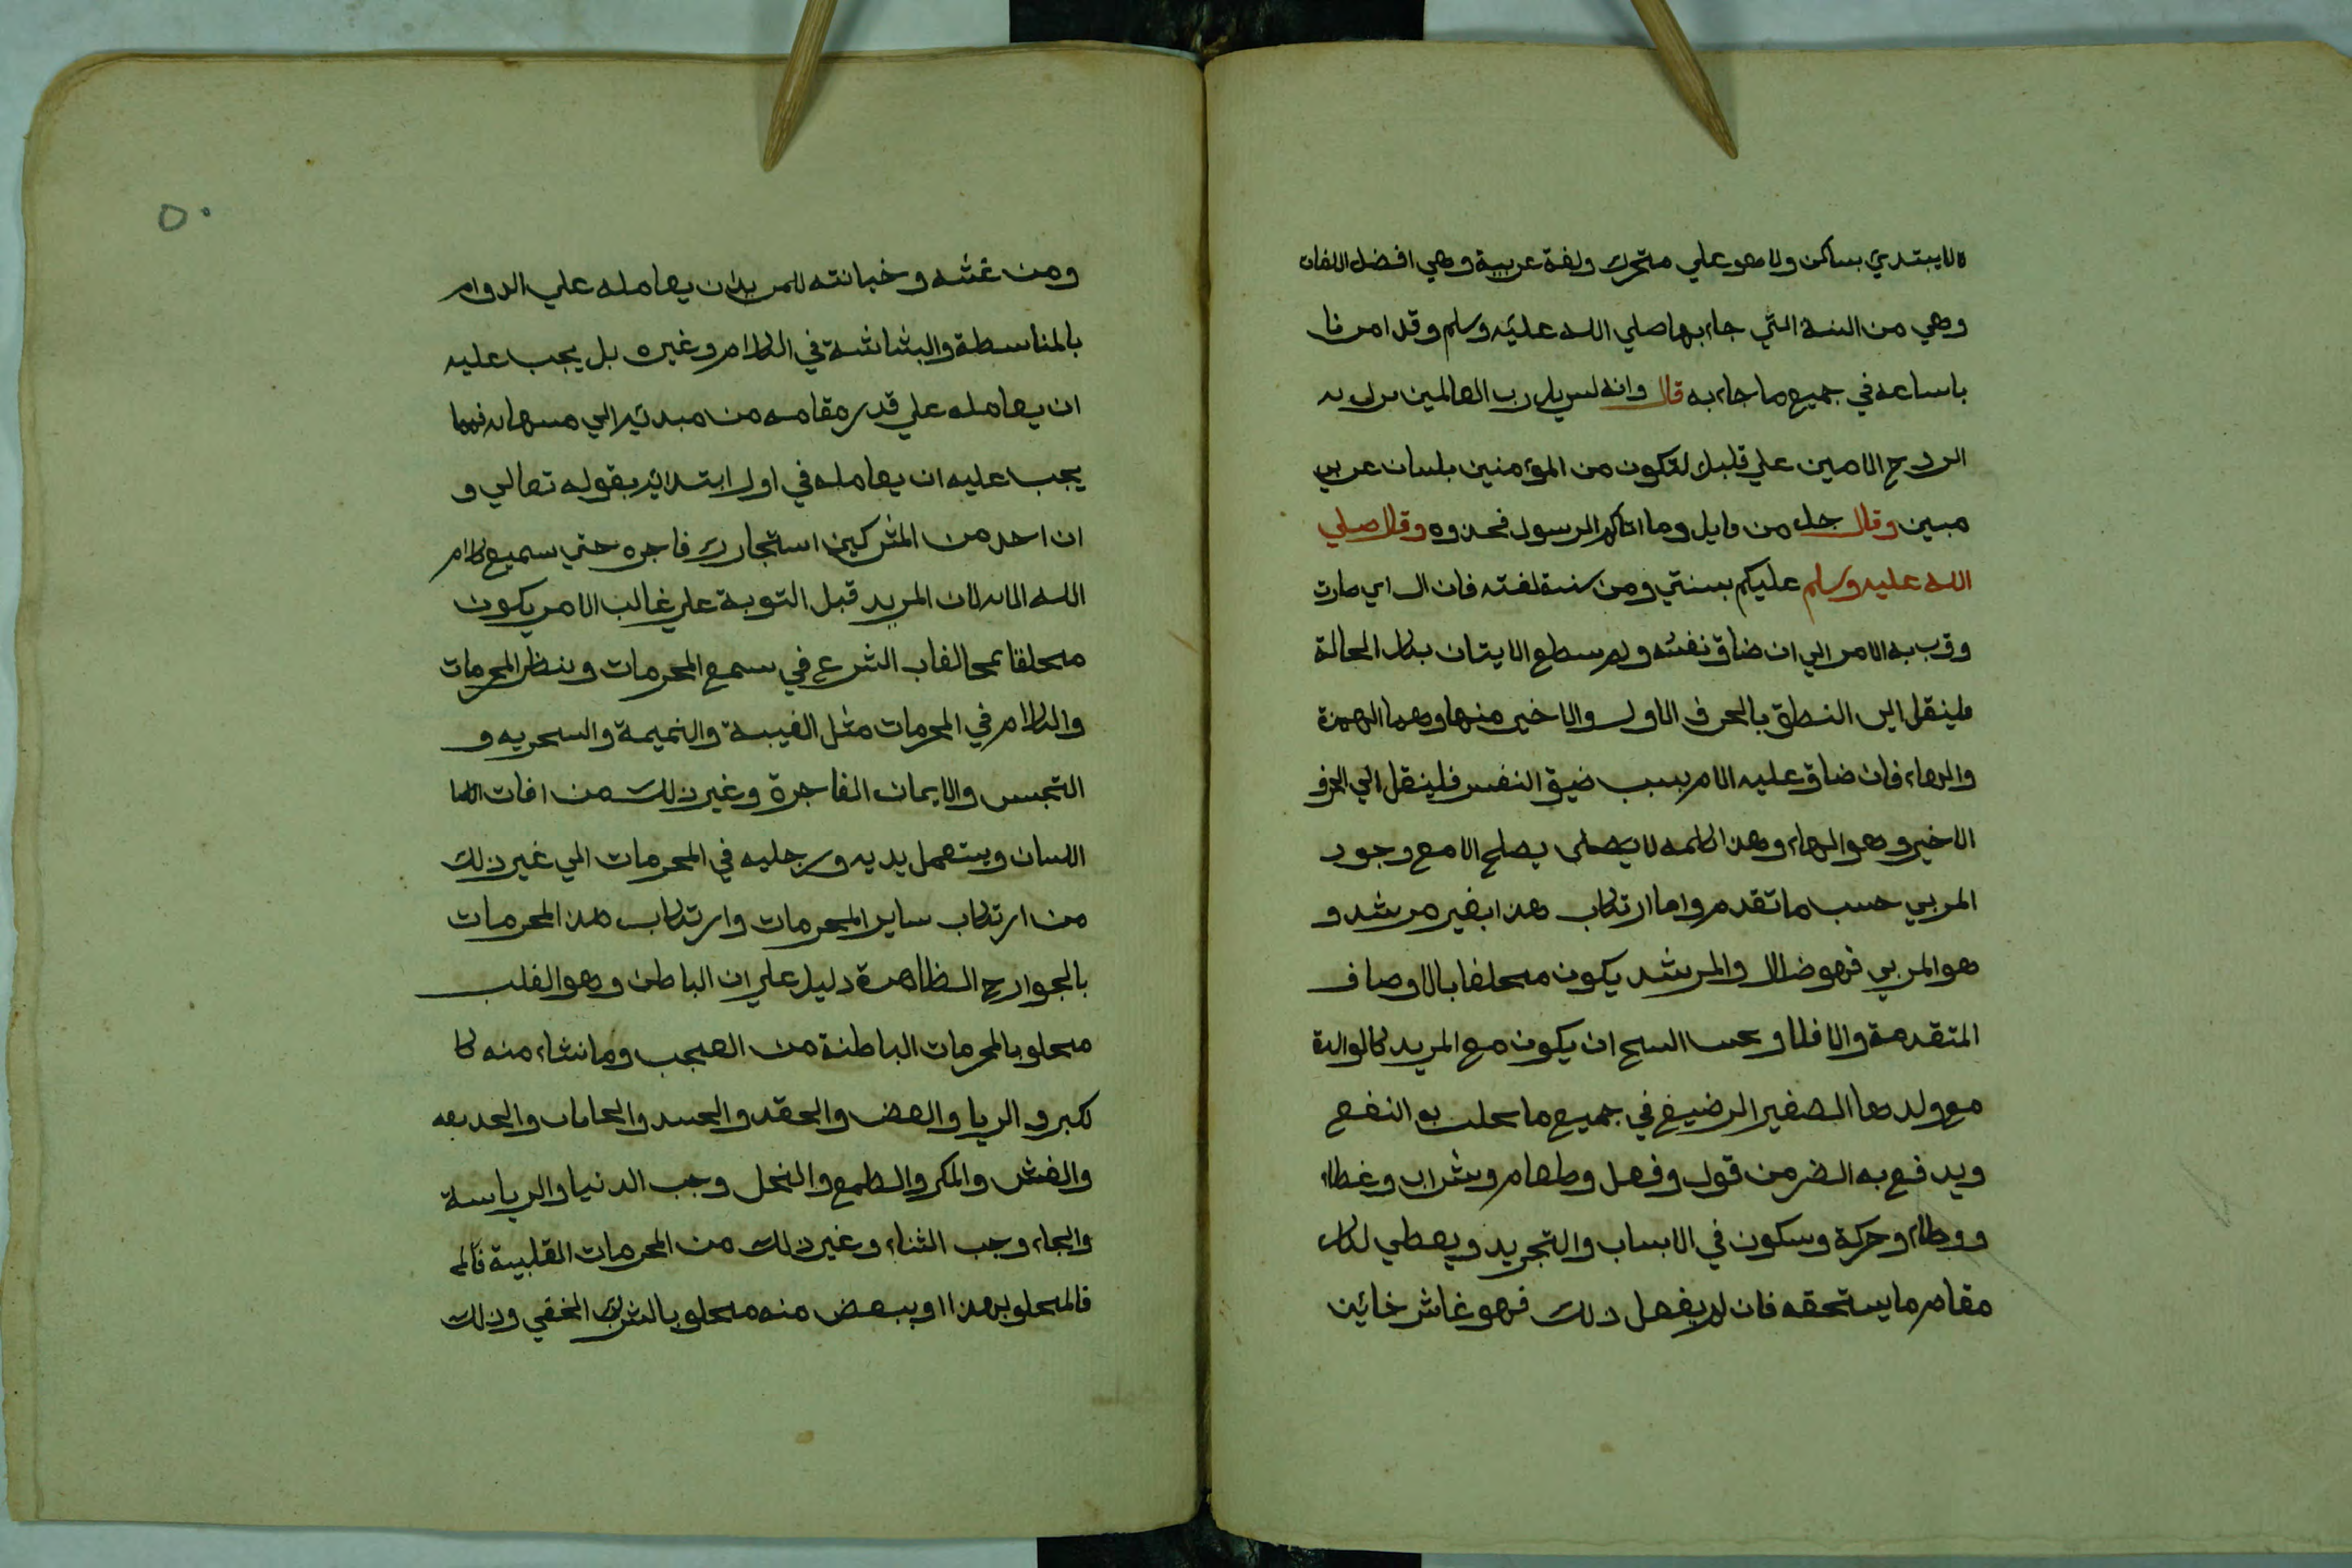 لا يبتدي بساكن ولا هو علي متحرك ولغة عربية وهي افضل اللغات
وهي من السنة التي جاء بها صلي الله عليه وسلم وقد امرنا
باساعه في جميع ما جاء به قال وانه لسريل رب العالمين برل به
الروح الامين علي قلبك لتكون من المؤمنين بلسان عربي
مبين وقال جل من قايل وما اتاكم الرسول فخذوه وقال صلي
الله عليه وسلم عليكم بسنتي ومن سنة لغته فان ال اي صارت
وقرب به الامر الي ان ضاق نفسه ولم سطع الايتان بتلك الحالة
فلينقل الى النطق بالحرف الاول والاخير منها وهما الهمزة
والهاء فان ضاق عليه الامر بسبب ضيق النفس فلينقل الي الحرف
الاخير وهو الهاء وهذ الكلمه لا يصلح الا مع وجود
المربي حسب ما تقدم واما ارتكاب هذا بغير مرشد و
هو المربي فهو ضلال والمرشد يكون متخلقا بالاوصاف
المتقدمة والا فلا ويجب الشيخ ان يكون مع المريد كالوالدة
مع ولدها الصغير الرضيع في جميع ما يجلب به النفع
ويدفع به الضر من قول وفعل وطعام وشراب وغطاء
ووطاء وحركة وسكون في الاسباب والتجريد ويعطي لكل
مقام ما يستحقه فان لم يفعل ذلك فهو غاش خائن
٥٠
ومن غشه وخيانته للمريد ان يعامله علي الدوام
بالمناسطة والبشاشة في الكلام وغيره بل يجب عليه
ان يعامله علي قدر مقامه من مبدئه الي منتهاه فمما
يجب عليه ان يعامله في اول ابتدائه بقوله تعالي و
ان احد من المشركين استجارك فاجره حتي سميع كلام
الله الايه لان المريد قبل التوبة علي غالب الامر يكون
متخلقا بمخالفات الشرع في سمع المحرمات ونظر المحرمات
والكلام في المحرمات مثل الغيبة والنميمة والسخريه و
التجسس والايمان الفاجرة وغير ذلك من افات
اللسان ويستعمل يديه ورجليه في المحرمات الي غير ذلك
من ارتكاب ساير المحرمات وارتكاب هذ المحرمات
بالجوارح الظاهرة دليل علي ان الباطن وهو القلب
متخلق بالمحرمات الباطنة من العجب وما نشاء منه كا
لكبر والريا والبغض والحقد والحسد والخيانة والخديعه
والغش والمكر والطمع والبخل وحب الدنيا والرياسة
والجاه وحب الثناء وغير ذلك من المحرمات القلبية فالم
فالمتخلق بهذا او ببعض منه متخلق بالشرك الخفي وذلك